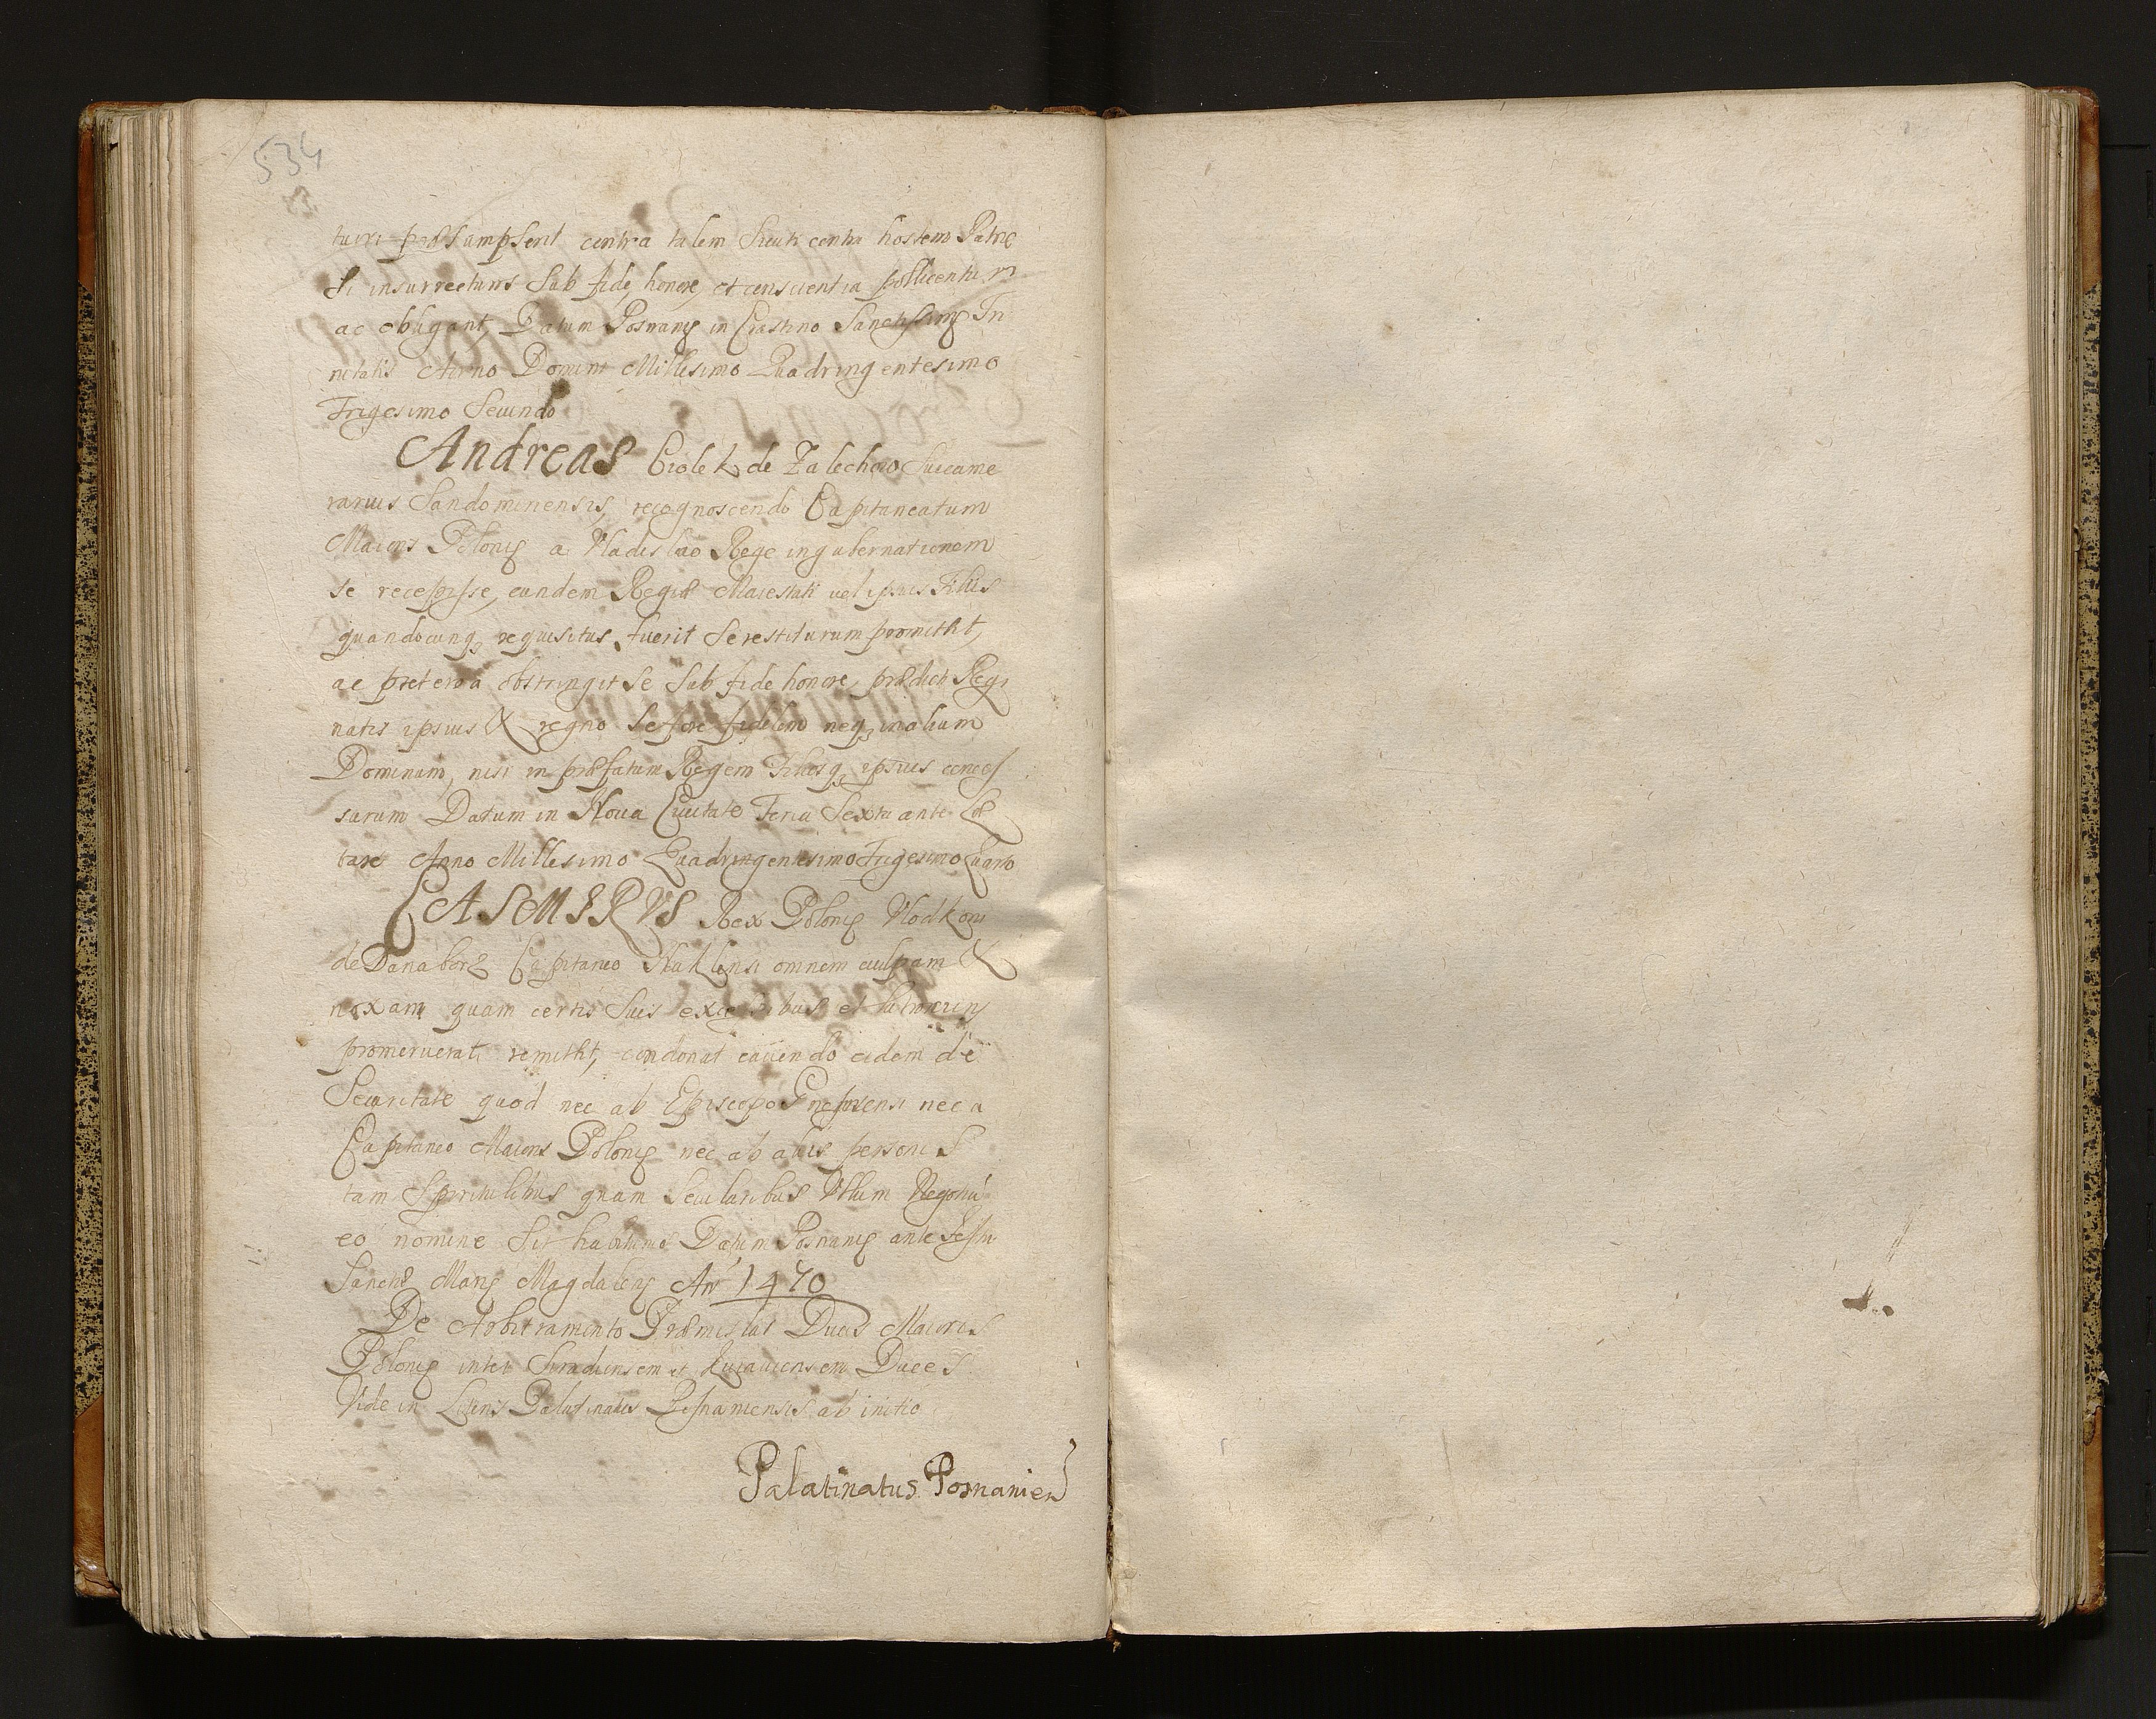 534
tueri præsampserit contra talem sicuti contra hostem Patriæ
se insurrecturos sub fide, honore, et conscientia pollicentur
ac obligant, Datum Posnaniæ in Crastino Sanctissimæ Tri
nitatis Anno Domini Millesimo Quadringentesimo
Trigesimo Secundo
Andreas Ciolek de Zalechow succame
rarius Sandomiriensis, recognoscendo Capitaneatum
Maioris Poloniæ a Vladislao Rege in gubernationem
se recepisse, eundem Regiæ Maiestati vel ipsius Filiis
quandocunq, requisitus fuerit se restiturum promittit,
ac præterea obstringit se sub fide honore, prædicto Regi
natis ipsius & regno se fore fidelem neq, in alium
Dominum, nisi in præfatum Regem Filiosq, ipsius conces
surum Datum in Noua Ciuitate Feria Sexta ante Læ
tare Anno Millesimo Quadringentesimo Trigesimo Quarto
CASIMIRVS Rex Poloniæ Vlodkoni
de Danaborz Capitaneo Naklensi omnem culpam &
noxam quam certis suis excessibus et latrociniis
promeruerat remittit, condonat cauendo eidem de
Securitate quod nec ab Episcopo Gnesnensi nec a
Capitaneo Maioris Poloniæ nec ab aliis personis
tam Spiritualibus quam Secularibus Vllum Negotiũ
eo nomine sit habiturus Datum Posnaniæ ante Festũ
Sanctæ Mariæ Magdalenæ An̄ 1470
De Arbitramento Præmislai Ducis Maioris
Poloniæ inter Siradiensem et Cuiauiensem Duces
Vide in Literis Palatinatus Posnaniensis ab initio
Palatinatus Posnanien